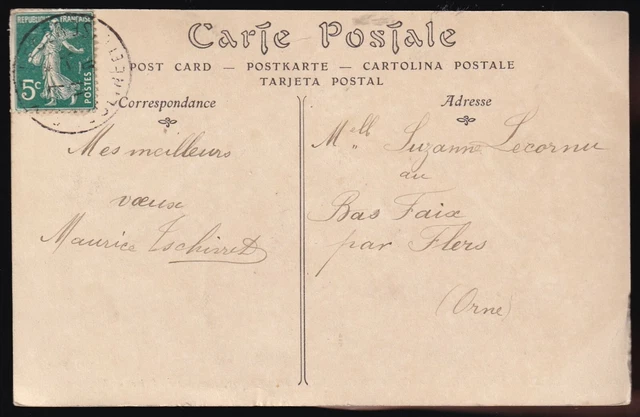 REPUBLIQUE FRANÇAISE
5c
POSTES
Carte Postale
POST CARD — POSTKARTE — CARTOLINA POSTALE
TARJETA POSTAL
Correspondance
Mes meilleurs
vœux
Maurice Tschirret
Adresse
Melle Suzanne Lecornu
au
Bas Faix
par Flers
(Orne)